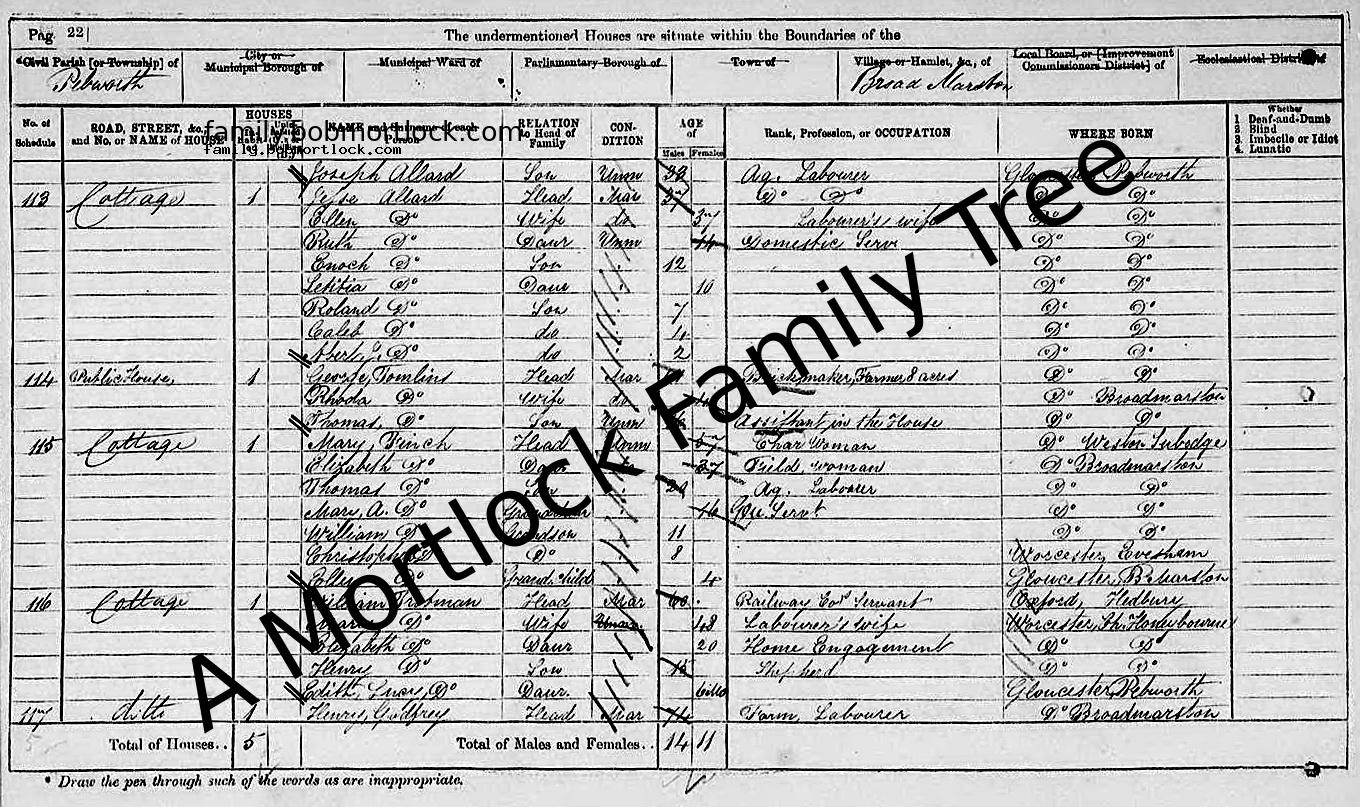 Pag 22
The undermentioned Houses are situate within the Boundaries of the
Civil Parish [or Township] of
City or Municipal Borough of
Municipal Ward of
Parliamentary Borough of
Town of
Village or Hamlet, &c., of
Local Board, or [Improvement Commissioners District] of
Ecclesiastical District of
Pebworth
Broad Marston
No. of Schedule
ROAD, STREET, &c., and No. or NAME of HOUSE
HOUSES
NAME and Surname of each Person
RELATION to Head of Family
CONDITION
AGE of
Males Females
Rank, Profession, or OCCUPATION
WHERE BORN
Whether
1 Deaf-and-Dumb
2 Blind
3 Imbecile or Idiot
4 Lunatic
family.bobmortlock.com
family.bobmortlock.com
Joseph Allard Son Unm 33 Ag. Labourer Gloucester, Pebworth
113 Cottage 1 Allard Head Mar 37 Do Do Do Do
Ellen Do Wife do 37 Labourer's wife Do Do
Ruth Do Daur Unm 14 Domestic Serv Do Do
Enoch Do Son 12 Do Do
Letitia Do Daur 10 Do Do
Roland Do Son 7 Do Do
Caleb Do do 4 Do Do
Do do 2 Do Do
114 Public House, 1 George, Tomlins Head Mar Brickmaker, Farmer 8 acres Do Do
Rhoda Do Wife do Do Broadmarston
Thomas, Do Son Unm Assistant in the House Do Do
115 Cottage 1 Mary, Head Unm 57 Char Woman Do Weston Subedge
Elizabeth Do Daur 37 Field woman Do Broadmarston
Thomas Do Ag. Labourer Do Do
Mary, A. Do 16 Servt Do Do
William Do Grandson 11 Do Do
Do Do 8 Worcester, Evesham
Ellen Do Grand child 4 Gloucester,
116 Cottage 1 William Head Mar 60 Railway Servant Oxford,
Do Wife 48 Labourer's wife Worcester, Ch. Honeybourne
Elizabeth Do Daur 20 Home Engagement Do Do
Henry Do Son Shepherd Do Do
Edith, Lucy, Do Daur. 6 Gloucester, Pebworth
117 ditto 1 Henry, Godfrey Head Mar 74 Farm, Labourer Do Broadmarston
Total of Houses.. 5 Total of Males and Females.. 14 11
* Draw the pen through such of the words as are inappropriate.
A Mortlock Family Tree